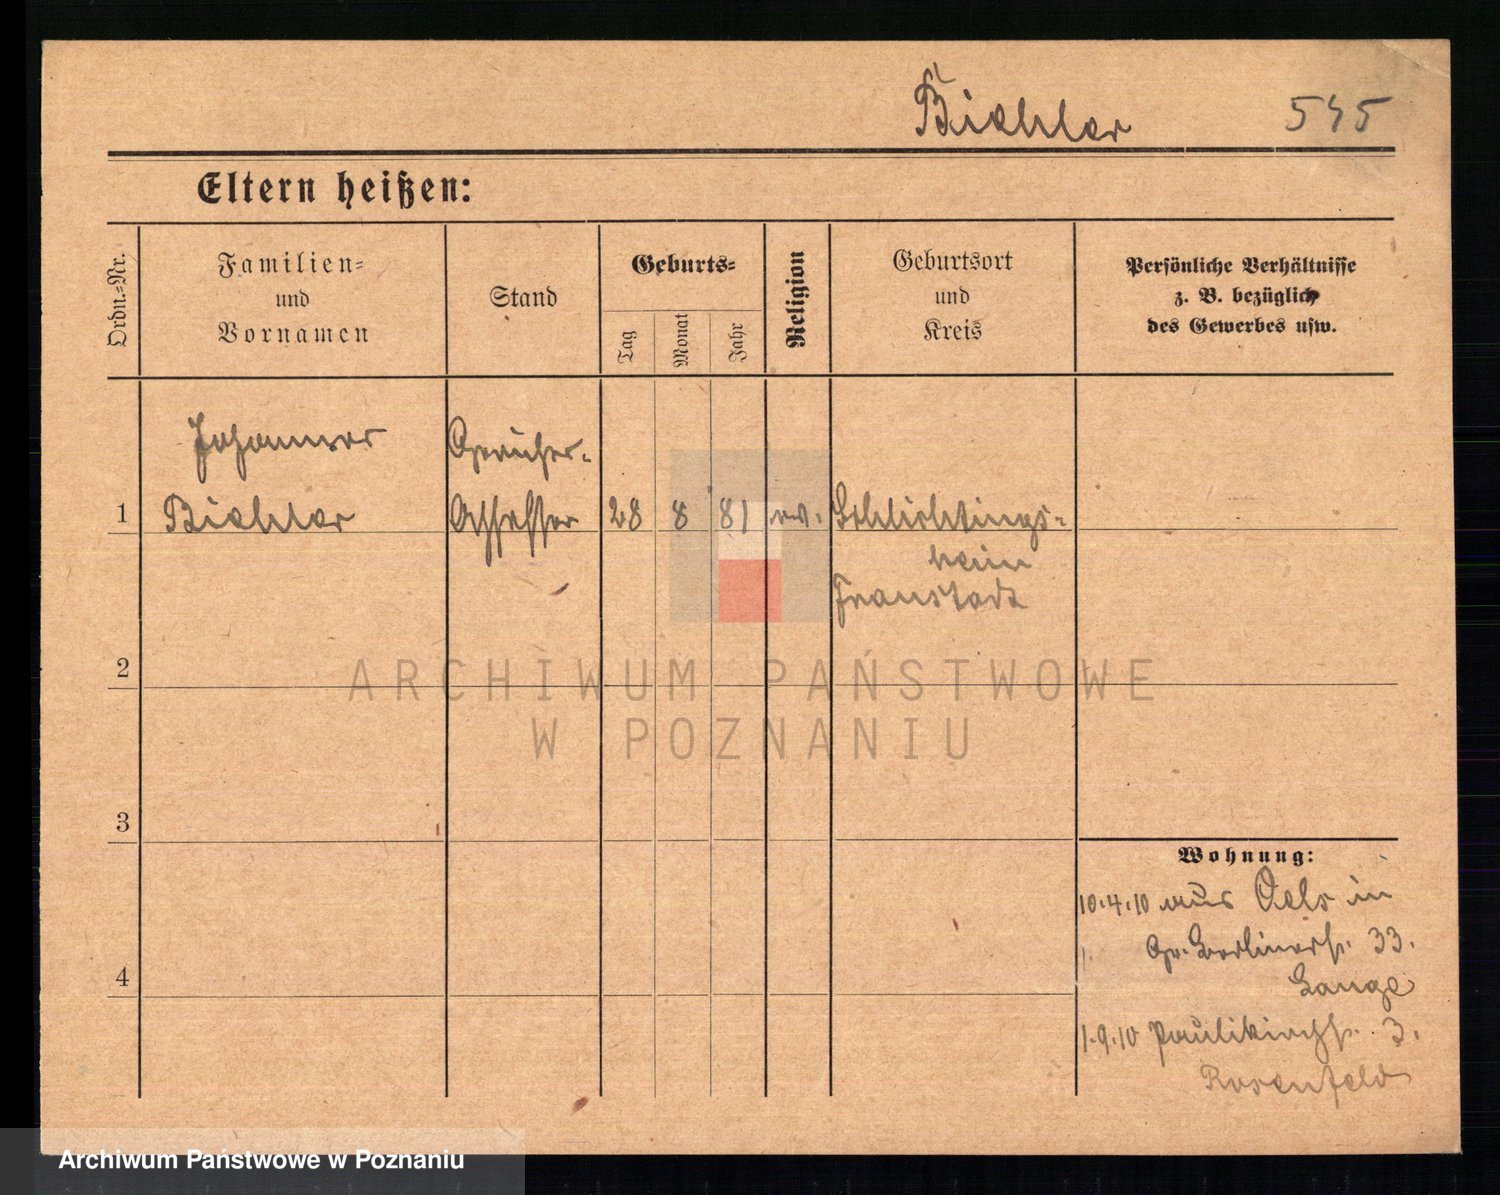 Biehler 545
Eltern heißen:
Ordn.-Nr.
Familien-
und
Vornamen
Stand
Geburts-
Tag
Monat
Jahr
Religion
Geburtsort
und
Kreis
Persönliche Verhältnisse
z. B. bezüglich
des Gewerbes usw.
Johannes
Assessor
1 Biehler 28 8 81 ev. Schlichtings-
heim
Fraustadt
2
3
4
Wohnung:
10.4.10 aus Oels in
Gr. Berlinerst. 33.
Lange
1.9.10 Paulikirchst. 3.
Rosenfeld
ARCHIWUM PAŃSTWOWE
W POZNANIU
Archiwum Państwowe w Poznaniu